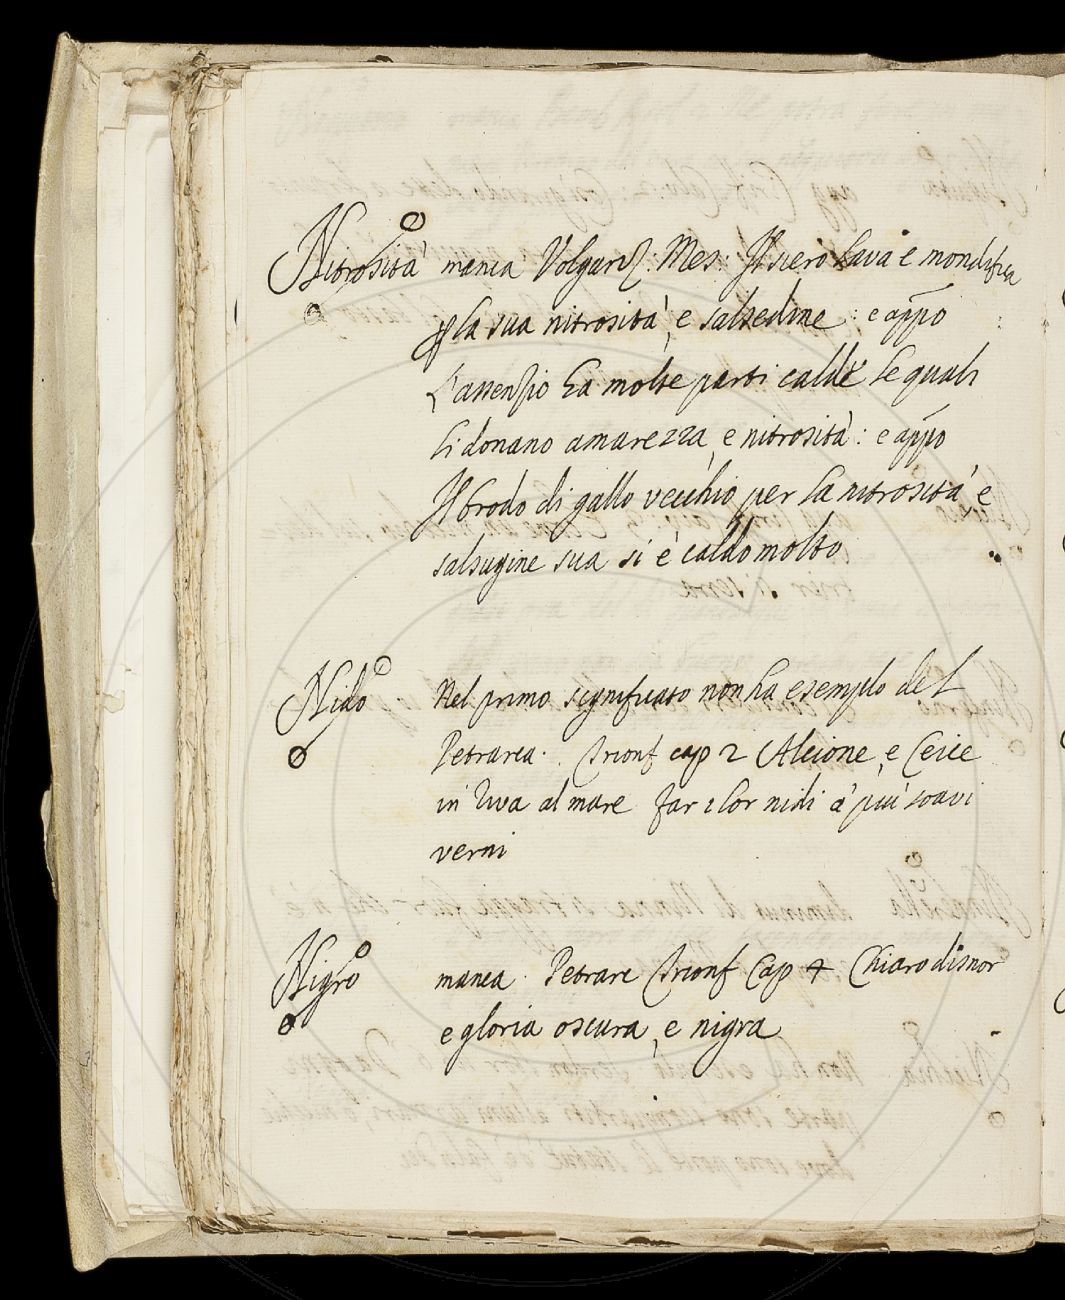 Nitrosità manca Volgariz. Mes. Il siero lava e mondifica
p la sua nitrosità, e salsedine: e appo
L'assenzio ha molte parti calde le quali
li donano amarezza, e nitrosità: e appo
Il brodo di gallo vecchio per la nitrosità, e
salsugine sua si è caldo molto
Nido Nel primo significato non ha esemplo del
Petrarca. Trionf cap 2 Alcione, e Ceice
in riva al mare far i lor nidi a' più soavi
verni
Nigro manca. Petrarc Trionf Cap 4 Chiaro disnor
e gloria oscura, e nigra